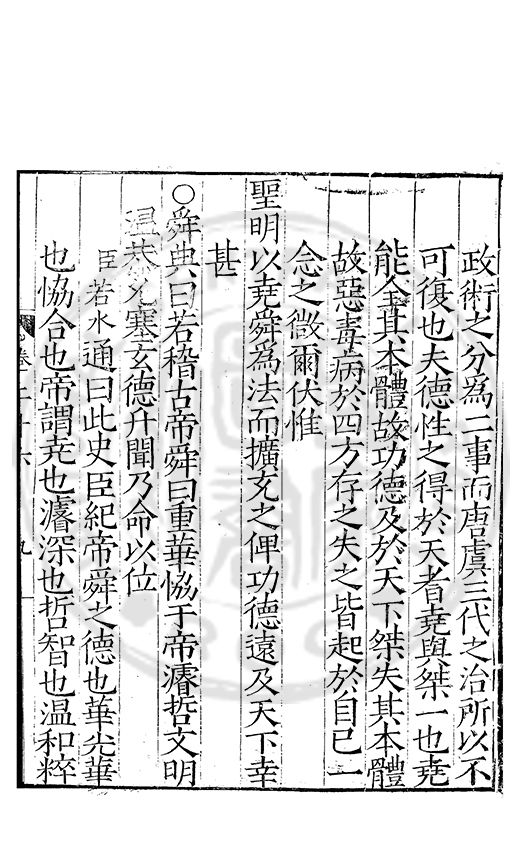 政術之分為二事而唐虞三代之治所以不
可復也夫德性之得於天者堯與桀一也堯
能全其本體故功德及於天下桀失其本體
故惡毒病於四方存之失之皆起於自己一
念之微爾伏惟
聖明以堯舜為法而擴充之俾功德遠及天下幸
甚
○舜典曰若稽古帝舜曰重華協于帝濬哲文明
溫恭允塞玄德升聞乃命以位
臣若水通曰此史臣紀帝舜之德也華光華
也協合也帝謂堯也濬深也哲智也溫和粹
卷二十六 九